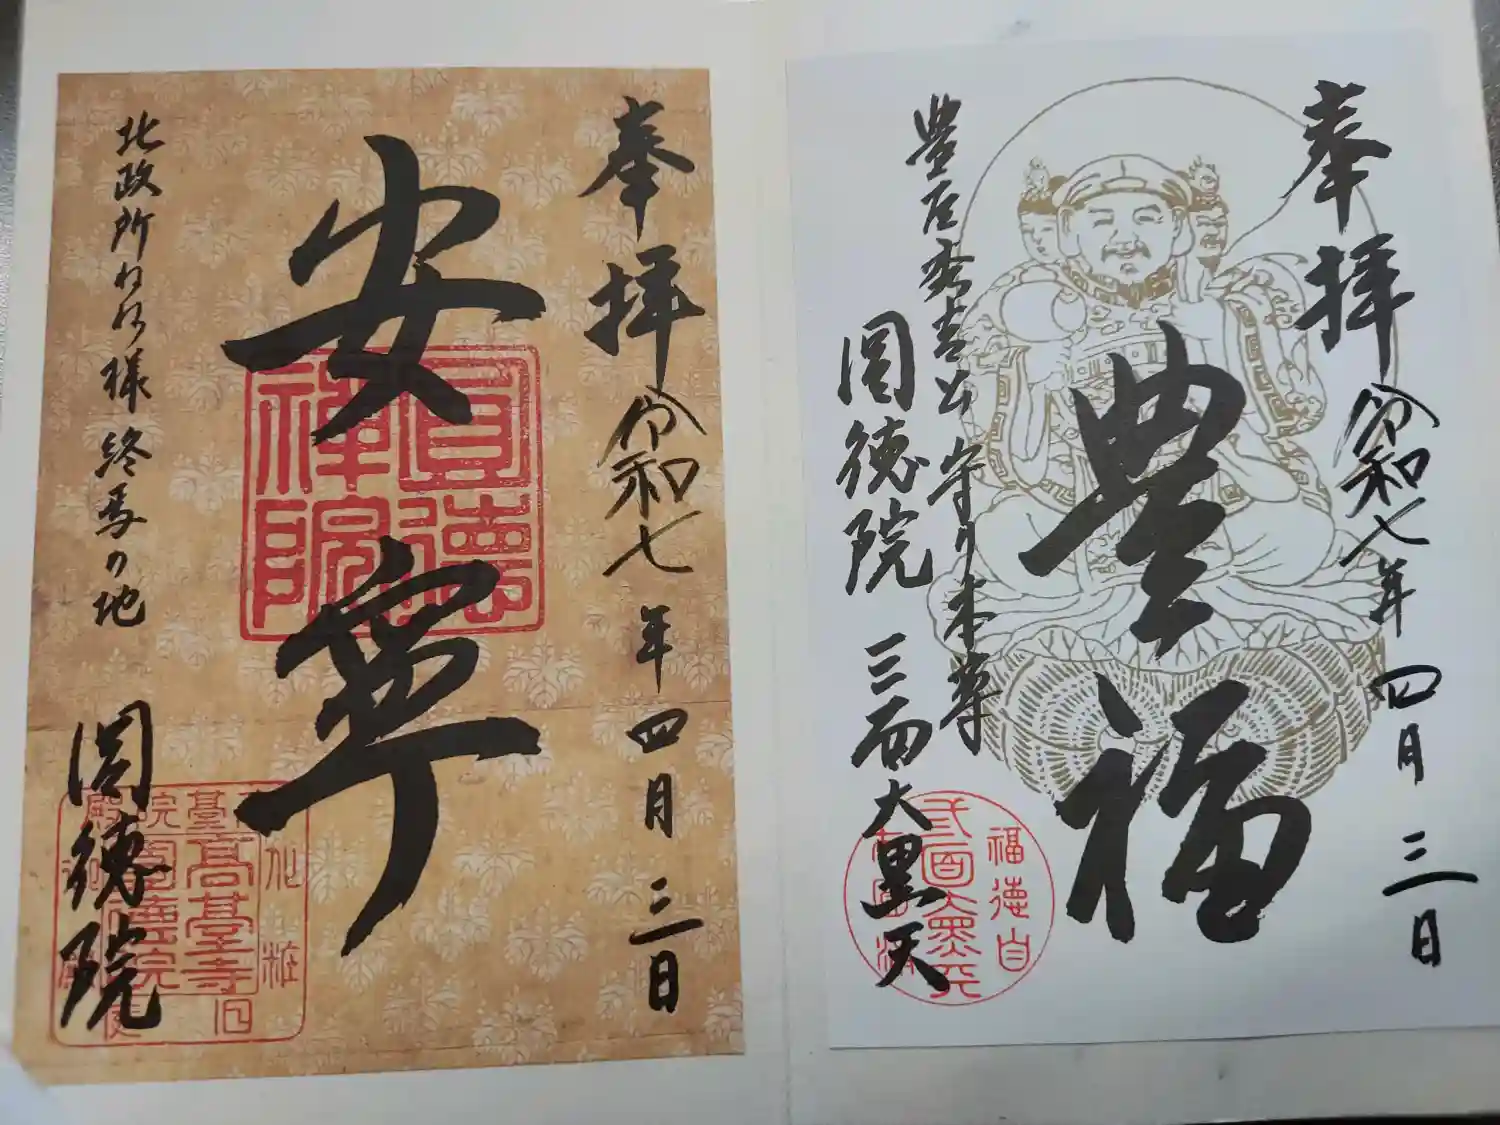 奉拝
令和七年四月三日
豊福
豊臣秀吉公守り本尊
圓徳院 三面大黒天
三面大黒天
福徳自
奉拝
令和七年四月三日
安寧
圓徳禅院
北政所ねね様 終焉の地
圓徳院
高臺寺
圓徳院
化粧